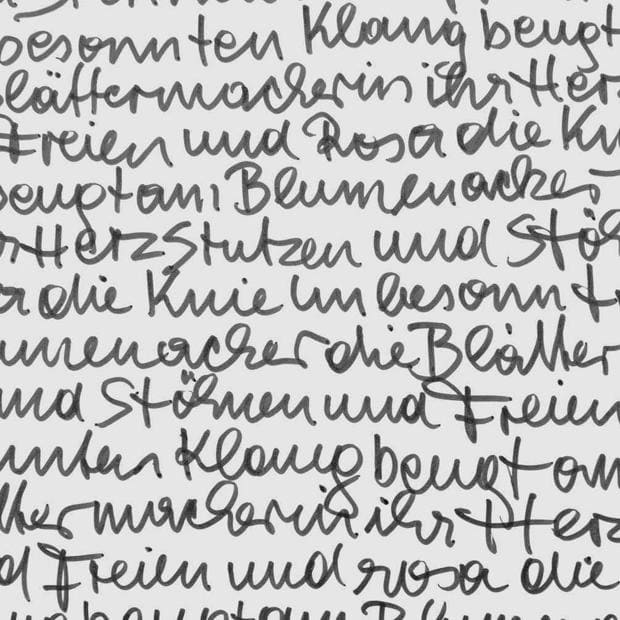 besonnten Klang beugt
lättermacherin ihr Her
Freien und Rosa die Kn
beugt am Blumenacker
r Herz Stutzen und Stö
a die Knie Im besonnt
umenacker die Blätter
und Stöhnen und Freien
nnten Klang beugt am
ttermacherin ihr Herz
d Freien und rosa die